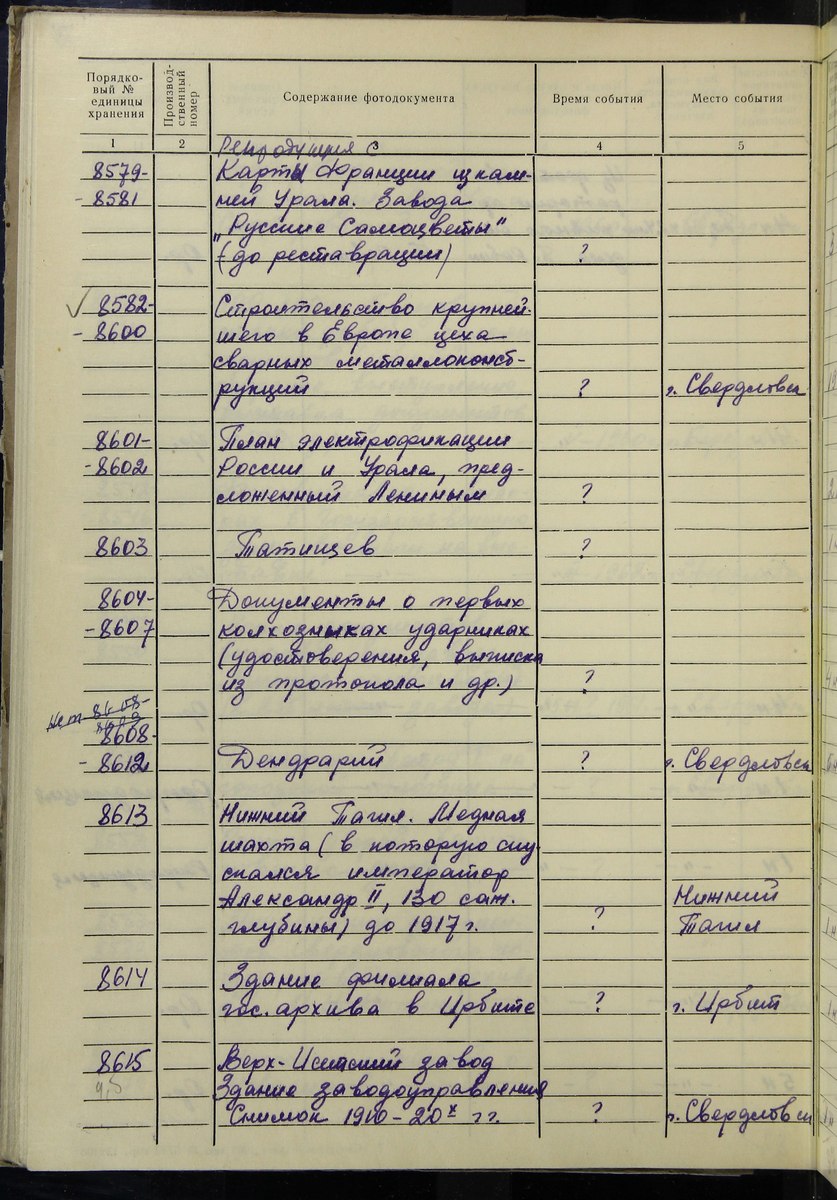 Порядко-
вый №
единицы
хранения
Производ-
ственный
номер
Содержание фотодокумента
Время события
Место события
1 2 3 4 5
Репродукция с
8579- Карты Франции из кам-
- 8581 ней Урала. Завода
"Русские Самоцветы"
(до реставрации) ?
✓ 8582- Строительство крупней-
- 8600 шего в Европе цеха
сварных металлоконст-
рукций ? г. Свердловск
8601- План электрофикации
- 8602 России и Урала, пред-
ложенный Лениным ?
8603 Татищев ?
8604- Документы о первых
- 8607 колхозниках ударниках
(удостоверения, выписка
из протокола и др.) ?
нет 8608-
8608-
- 8612 Дендрарий ? г. Свердловск
8613 Нижний Тагил. Медная
шахта (в которую спу-
скался император
Александр II, 130 саж. Нижний
глубины) до 1917 г. ? Тагил
8614 Здание филиала
гос. архива в Ирбите ? г. Ирбит
8615 Верх-Исетский завод
Здание заводоуправления
Снимок 1910-20х гг. ? г. Свердловск